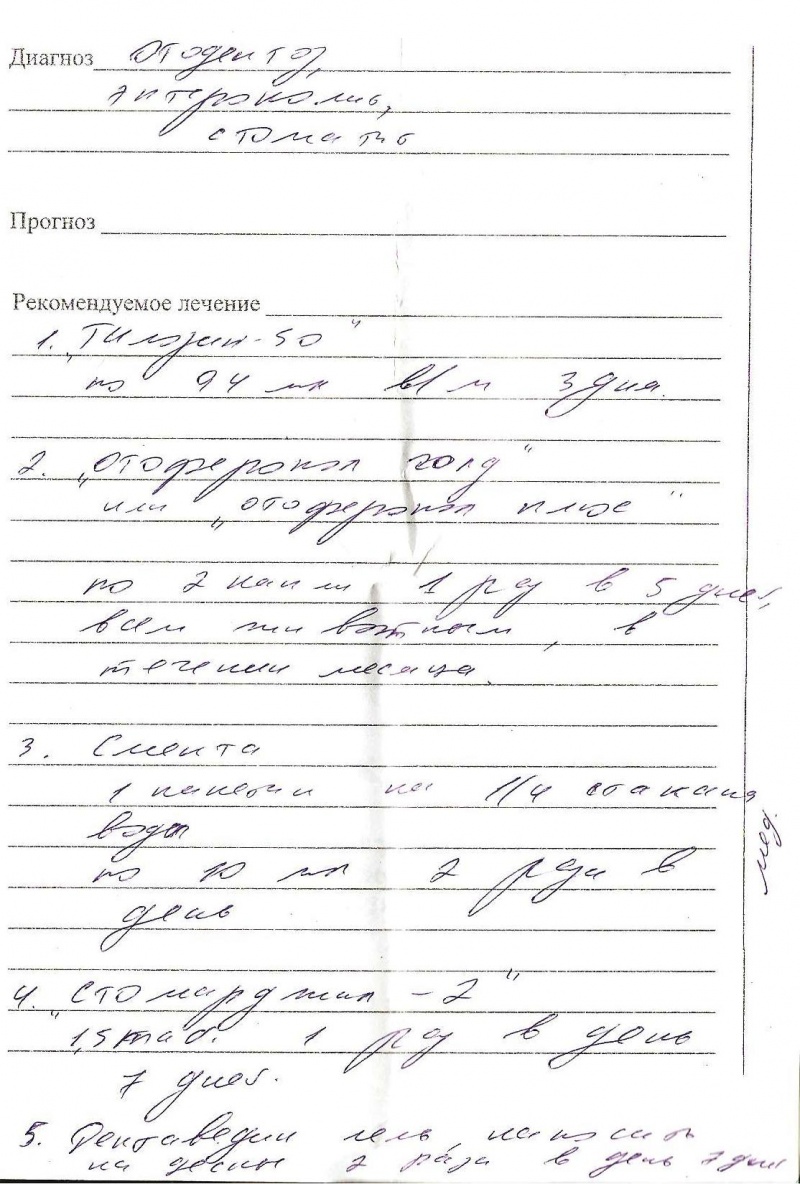 Диагноз Отодектоз,
энтероколит,
стоматит
Прогноз
Рекомендуемое лечение
1. „Тилозин-50"
по 0,4 мл в/м 3 дня.
2. „Отоферонол голд"
или „Отоферонол плюс"
по 2 капли 1 раз в 5 дней,
всем животным, в
течении месяца.
3. Смекта
1 пакетик на 1/4 стакана
воды
по 10 мл 2 раза в
день
мед.
4. „Стоморджил-2"
1,5 таб. 1 раз в день
7 дней.
5. Дентаведин гель, наносить
на десны 2 раза в день 7 дней